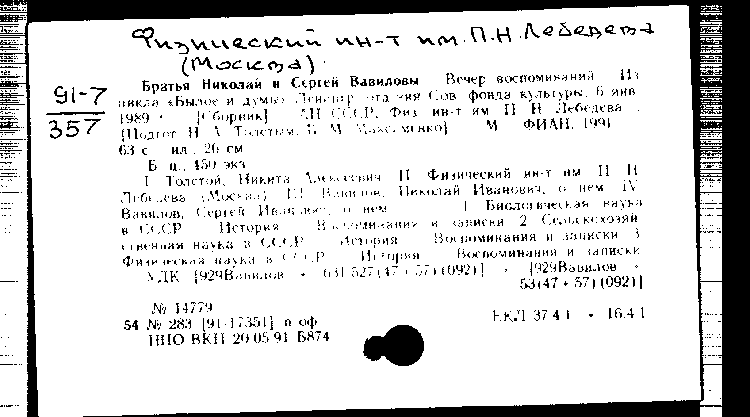 Физический ин-т им. П.Н. Лебедева
(Москва).
91-7
357
Братья Николай и Сергей Вавиловы Вечер воспоминаний Из
цикла «Былое и думы» Ленингр отд-ния Сов фонда культуры, 6 янв
1989 г [Сборник] АН СССР, Физ ин-т им П Н Лебедева
[Подгот Н А Толстым, Максименко] М ФИАН, 1991
63 с ил 20 см
Б ц, 450 экз
I Толстой, Никита Алексеевич II Физический ин-т им П Н
Лебедева (Москва) III Вавилов, Николай Иванович, о нем IV
Вавилов, Сергей Иванович, о нем 1 Биологическая наука
в СССР История Воспоминания и записки 2 Сельскохозяй
ственная наука в СССР История Воспоминания и записки 3
Физическая наука в СССР История Воспоминания и записки
УДК [929Вавилов + 631 527(47+57)(092)] + [929Вавилов +
53(47+57)(092)]
№ 14779
54 № 283 [91-17351] п оф
НПО ВКП 20 05 91 Б874
ЕКЛ 37 4 1 + 16.4 1